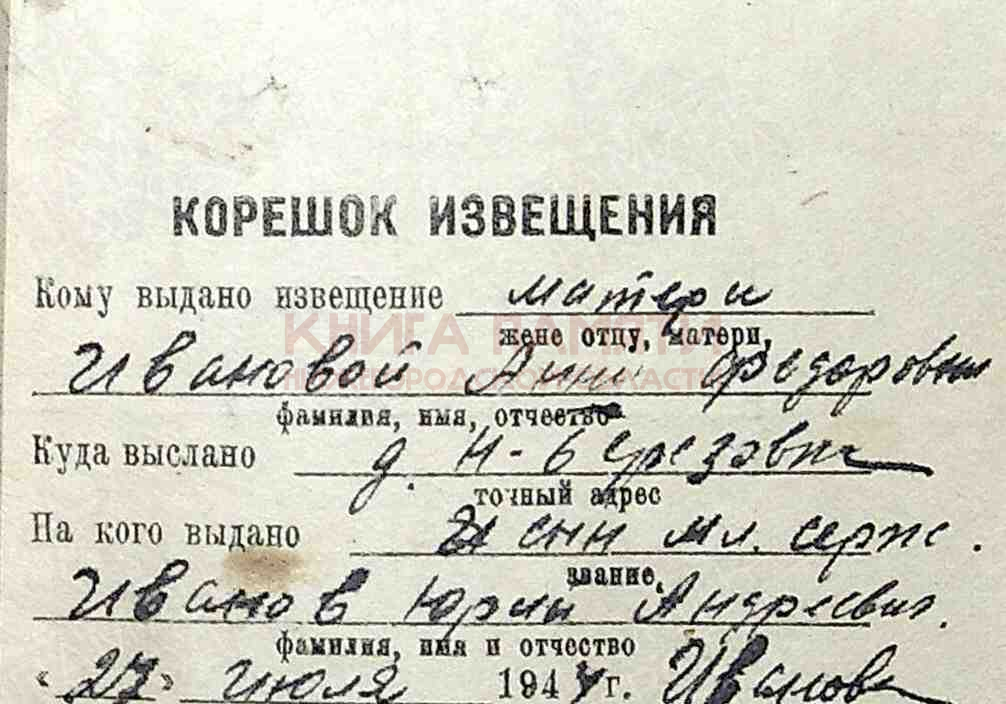 КОРЕШОК ИЗВЕЩЕНИЯ
Кому выдано извещение матери
жене отцу, матери,
КНИГА ПАМЯТИ
Ивановой Анне Федоровне
НИЖЕГОРОДСКОЙ ОБЛАСТИ
фамилия, имя, отчество
Куда выслано д. Н-Березовка
точный адрес
На кого выдано сын мл. серж.
звание,
Иванов Юрий Андреевич.
фамилия, имя и отчество
«27» июля 1944 г. Иванова